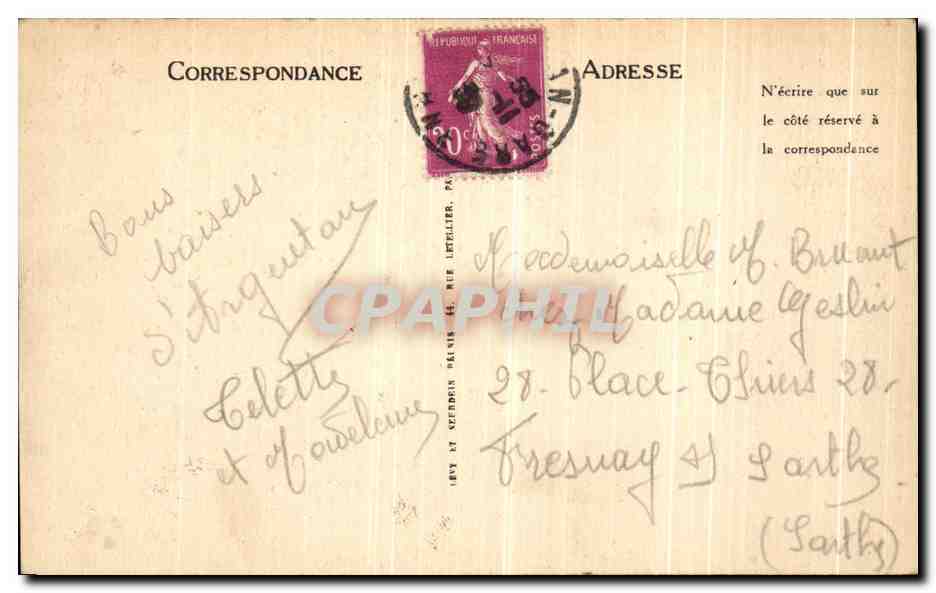 CORRESPONDANCE
ADRESSE
N'écrire que sur
le côté réservé à
la correspondance
REPUBLIQUE FRANÇAISE
20c
POSTES
Bons
baisers
d'Argentan
et Madeleine
LÉVY ET NEURDEIN RÉUNIS 44, RUE LETELLIER, PA
Mademoiselle M. Bruant
chez Madame Geslin
28 - Place - Thiers 28 -
Fresnay s/ Sarthe
(Sarthe)
CPAPHIL